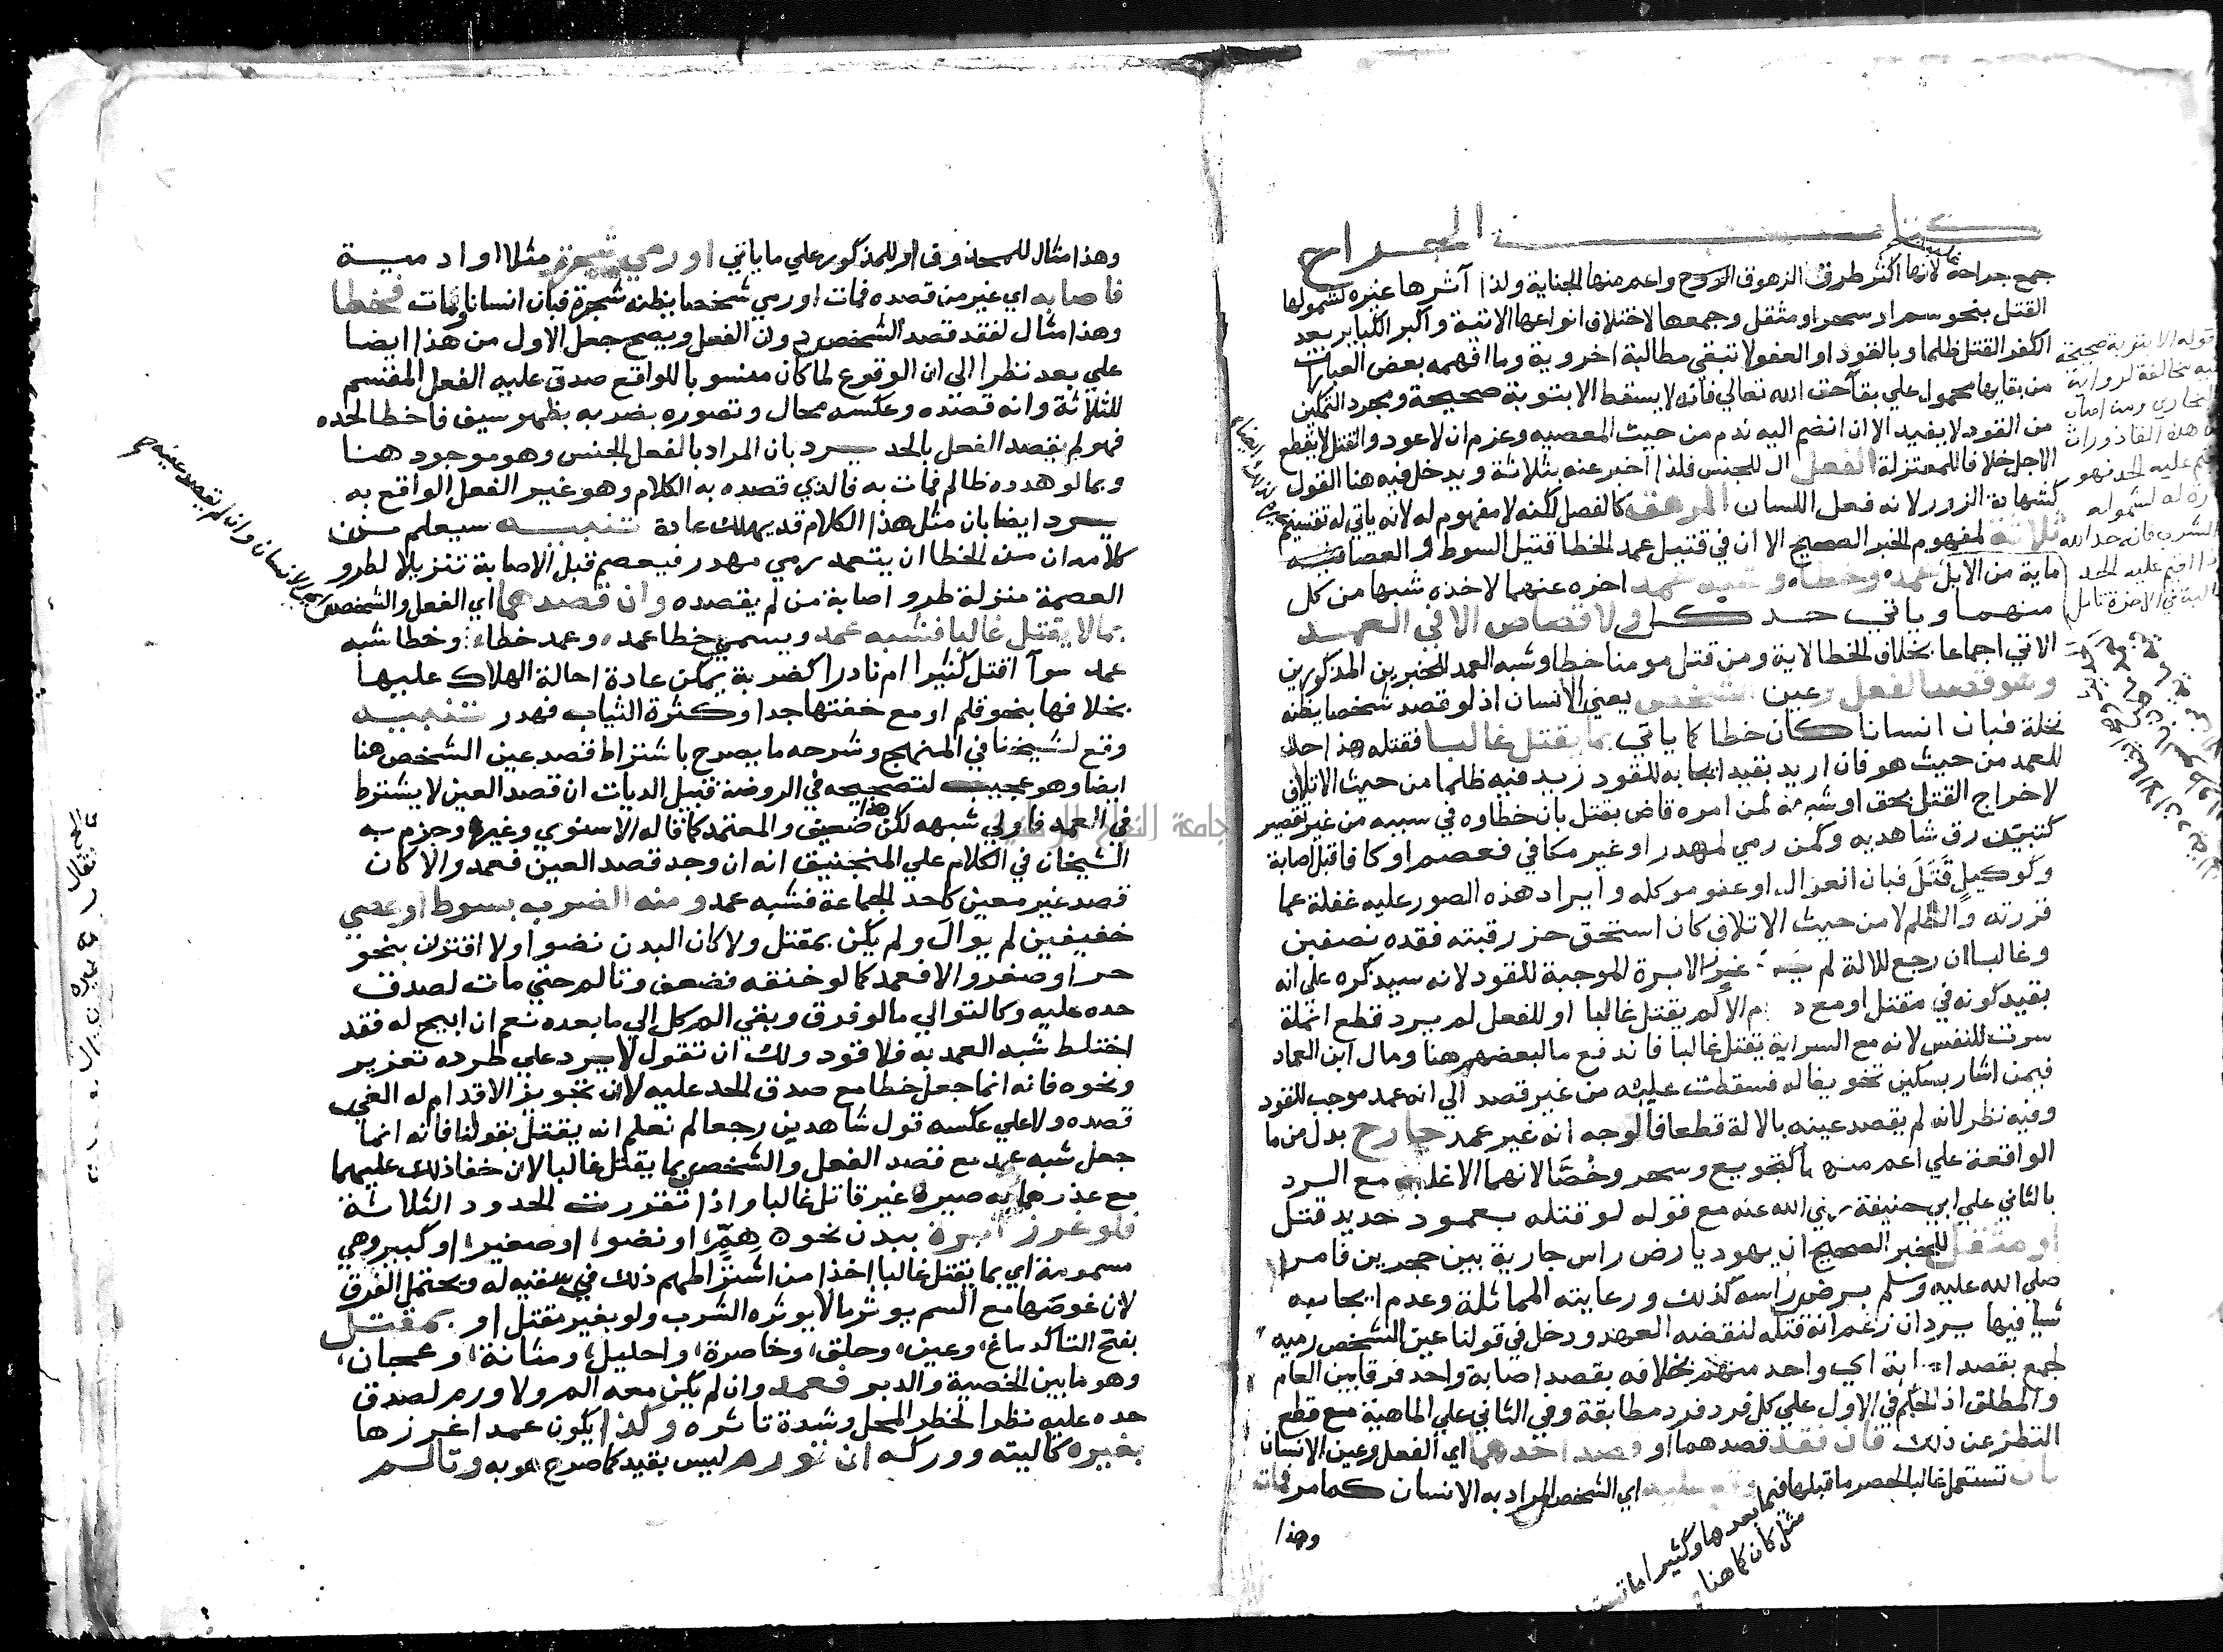 كتاب الجراح
جمع جراحة لانها اكثر طرق الزهوق الروح واعم منها الجناية ولذا آثرها غيره لشمولها
القتل بنحو سم او سحر او مثقل وجمعها لاختلاف انواعها الاتية واكبر الكباير بعد
الكفر القتل ظلما وبالقود او العفو لا تبقي مطالبة اخروية وما افهمه بعض العبارات
من بقايها محمول علي بقآ حق الله تعالي فانه لا يسقط الا بتوبة صحيحة ومجرد التمكين
من القود لا يفيد الا ان انضم اليه ندم من حيث المعصيه وعزم ان لا عود والقتل لا يقطع
الاجل خلافا للمعتزلة الفعل ال للجنس فلذا اخبر عنه بثلاثة ويدخل فيه هنا القول
كشهادة الزور لانه فعل اللسان المزهق كالفصل لكنه لا مفهوم له لانه ياتي له تقسيم
ثلاثة لمفهوم الخبر الصحيح الا ان في قتيل عمد الخطا قتيل السوط والعصا فيه
ماية من الابل عمد وخطاء وشبه عمد اخره عنهما لاخذه شبها من كل
منهما وياتي حد كل ولا قصاص الا في العمد
الاتي اجماعا بخلاف الخطا لاية ومن قتل مومنا خطا وشبه العمد للخبرين المذكورين
وهو قصد الفعل وعين الشخص يعني الانسان اذ لو قصد شخصا يظنه
نخلة فبان انسانا كان خطا كما ياتي بما يقتل غالبا فقتله هذا حد
للعمد من حيث هو فان اريد بقيد ايجابه للقود زيد فيه ظلما من حيث الاتلاف
لاخراج القتل بحق او شبهة لمن امره قاض بقتل بان خطاوه في سببه من غير تقصير
كتبين رق شاهديه وكمن رمي لمهدر او غير مكافي فعصم او كافا قبل اصابة
وكوكيل قتل فبان انعزاله او عفو موكله وايراد هذه الصور عليه غفلة عما
قررته والظلم لا من حيث الاتلاف كان استحق حز رقبته فقده نصفين
وغالبا ان رجع للالة لم غرز الابرة الموجبة للقود لانه سيذكره علي انه
بقيد كونه في مقتل او مع الالم يقتل غالبا او للفعل لم يرد قطع انملة
سرت للنفس لانه مع السراية يقتل غالبا فاندفع ما لبعضهم هنا ومال ابن العماد
فيمن اشار بسكين تخويفا له فسقطت عليه من غير قصد الي انه عمد موجب للقود
وفيه نظر لانه لم يقصد عينه بالالة قطعا فالوجه انه غير عمد جارح بدل من ما
الواقعة علي اعم منها بالتجويع وسحر وخصا لانهما الاغلب مع الرد
بالثاني علي ابي حنيفة رضي الله عنه مع قوله لو قتله بعمود حديد قتل
او مثقل للخبر الصحيح ان يهوديا رض راس جارية بين حجرين فامر
صلي الله عليه وسلم برض راسه كذلك ورعايته المماثلة وعدم ايجابيه
شيا فيها يرد ان زعم انه قتله لنقضه العهد ودخل في قولنا عين الشخص رميه
لجمع بقصد اصابة اي واحد منهم بخلافه بقصد اصابة واحد فرقا بين العام
والمطلق اذ الحكم في الاول علي كل فرد فرد مطابقة وفي الثاني علي الماهية مع قطع
النظر عن ذلك فان فقد قصدهما او قصد احدهما اي الفعل وعين الانسان
بان تستعمل غالبا لحصر ما قبلها فيما بعدها وكثيرا ما
مثل كان كما هنا
وقع عليه اي الشخص المراد به الانسان كما مر فمات
وهذا
قوله الا بتوبة صحيحة
فيه مخالفة لرواية
البخاري ومن اصاب
وهذا مثال للمحذوف او للمذكور علي ما ياتي او رمي شجرة مثلا او ادمية
فاصابه اي غير من قصده فمات او رمي شخصا يظنه شجرة فبان انسانا ومات فخطا
وهذا مثال لفقد قصد الشخص دون الفعل ويصح جعل الاول من هذا ايضا
علي بعد نظرا الي ان الوقوع لما كان منسوبا للواقع صدق عليه الفعل المقسم
للثلاثة وانه قصده وعكسه محال وتصوره بضربه بظهر سيف فاخطا لحده
فهو لم يقصد الفعل بالحد يرد بان المراد بالفعل الجنس وهو موجود هنا
وبما لو هدده ظالم فمات به فالذي قصده به الكلام وهو غير الفعل الواقع به
يرد ايضا بان مثل هذا الكلام قد يهلك عادة تنبيه سيعلم من
كلامه ان من الخطا ان يتعمد رمي مهدر فيعصم قبل الاصابة تنزيلا لطرو
العصمة منزلة طرو اصابة من لم يقصده وان قصدهما اي الفعل والشخص
بما لا يقتل غالبا فشبه عمد ويسمي خطا عمد، وعمد خطاء، وخطا شبه
عمد سوآ اقتل كثيرا ام نادرا كضربة يمكن عادة احالة الهلاك عليها
بخلافها بنحو قلم او مع خفتها جدا وكثرة الثياب فهدر تنبيه
وقع لشيخنا في المنهج وشرحه ما يصرح باشتراط قصد عين الشخص هنا
ايضا وهو عجيب لتصحيحه في الروضة قبيل الديات ان قصد العين لا يشترط
في العمد فاولي شبهه لكن هذا ضعيف والمعتمد كما قاله الاسنوي وغيره وجزم به
الشيخان في الكلام علي المنجنيق انه ان وجد قصد العين فعمد والا كان
قصد غير معين كاحد الجماعة فشبه عمد ومنه الضرب بسوط او عصي
خفيفين لم يوال ولم يكن بمقتل ولا كان البدن نضوا ولا اقترن بنحو
حر او صغر والا فعمد كما لو خنقه فضعف وتالم حتي مات لصدق
حده عليه وكالتوالي ما لو فرق وبقي الم كل الي ما بعده نعم ان ابيح له فقد
اختلط شبه العمد به فلا قود ولك ان تقول لا يرد علي طرده تعزير
ونحوه فانه انما جعل خطا مع صدق الحد عليه لان تجويز الاقدام له الغي
قصده ولا علي عكسه قول شاهدين رجعا لم نعلم انه يقتل بقولنا فانه انما
جعل شبه عمد مع قصد الفعل والشخص بما يقتل غالبا لان خفا ذلك عليهما
مع عذرهما به صيره غير قاتل غالبا واذا تقررت الحدود الثلاثة
فلو غرز ابرة ببدن نحو هم، او نضوا، او صغير، او كبير وهي
مسمومة اي بما يقتل غالبا اخذا من اشتراطهم ذلك في سقيه له ويحتمل الفرق
لان غوصها مع السم يوثر ما لا يوثره الشرب ولو بغير مقتل او بمقتل
بفتح التا كدماغ، وعين، وحلق، وخاصرة، واحليل، ومثانة، وعجان،
وهو ما بين الخصية والدبر فعمد وان لم يكن معه الم ولا ورم لصدق
حده عليه نظرا لخطر المحل وشدة تاثره وكذا يكون عمدا غرزها
بغيره كاليته ووركه ان تورم ليس بقيد كما صرح هو به وتالم